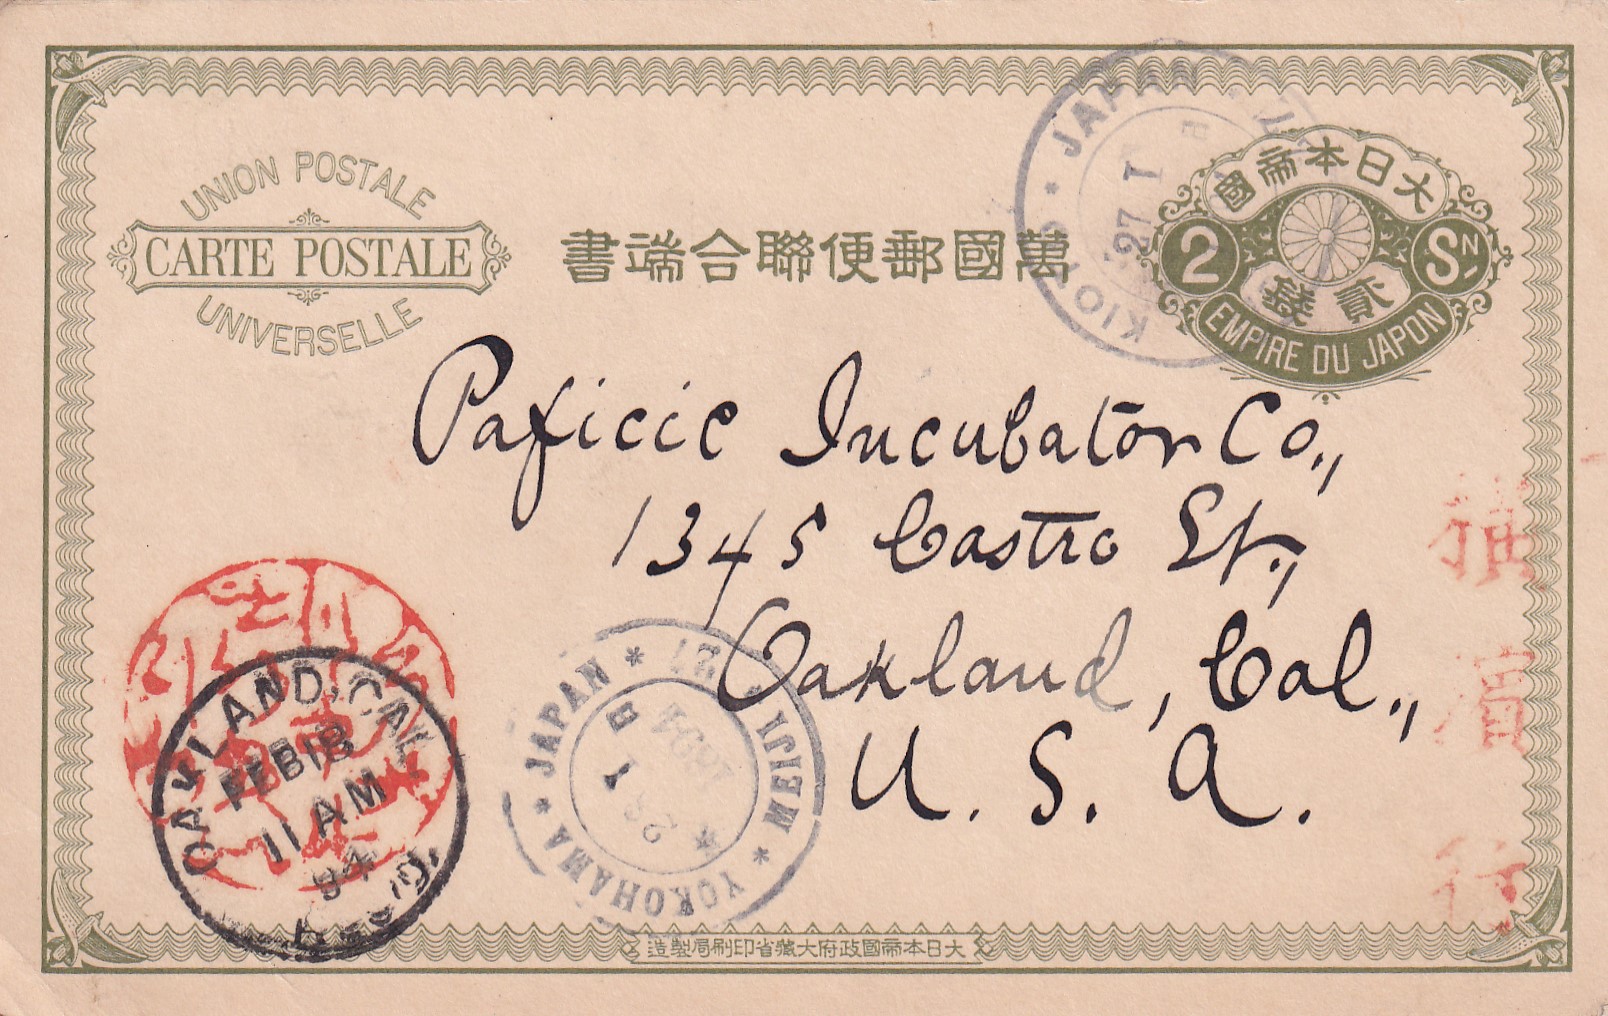 UNION POSTALE
CARTE POSTALE
UNIVERSELLE
書端合聯便郵國萬
國帝本日大
2 SN
錢貳
EMPIRE DU JAPON
JAPAN
KIOTO
27 I
Paficic Incubator Co.,
1345 Castro St.,
Oakland, Cal.,
U. S. A.
横
濱
行
OAKLAND, CAL
FEB 18
11 AM
94
REC'D.
YOKOHAMA * JAPAN * 27 * MEIJI *
1894
造製局刷印省藏大府政國帝本日大